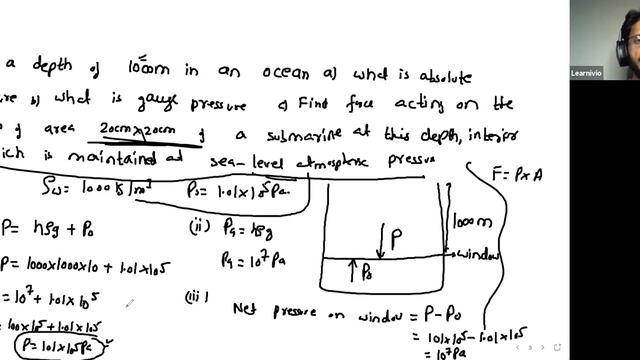 a depth of 1000m in an ocean a) what is absolute
ure b) what is gauge pressure c) Find force acting on the
of area 20cm x 20cm of a submarine at this depth, interior
hich is maintained at sea-level atmospheric pressure
ρw = 1000 kg/m³ P₀ = 1.01 x 10⁵ Pa
F = P x A
P = hρg + P₀
P = 1000x1000x10 + 1.01x10⁵
= 10⁷ + 1.01x10⁵
= 100x10⁵ + 1.01x10⁵
P = 101x10⁵ Pa
(ii) Pg = hρg
Pg = 10⁷ Pa
P
P₀
1000m
window
(iii) Net pressure on window = P - P₀
= 101x10⁵ - 1.01x10⁵
= 10⁷ Pa
Learnivio